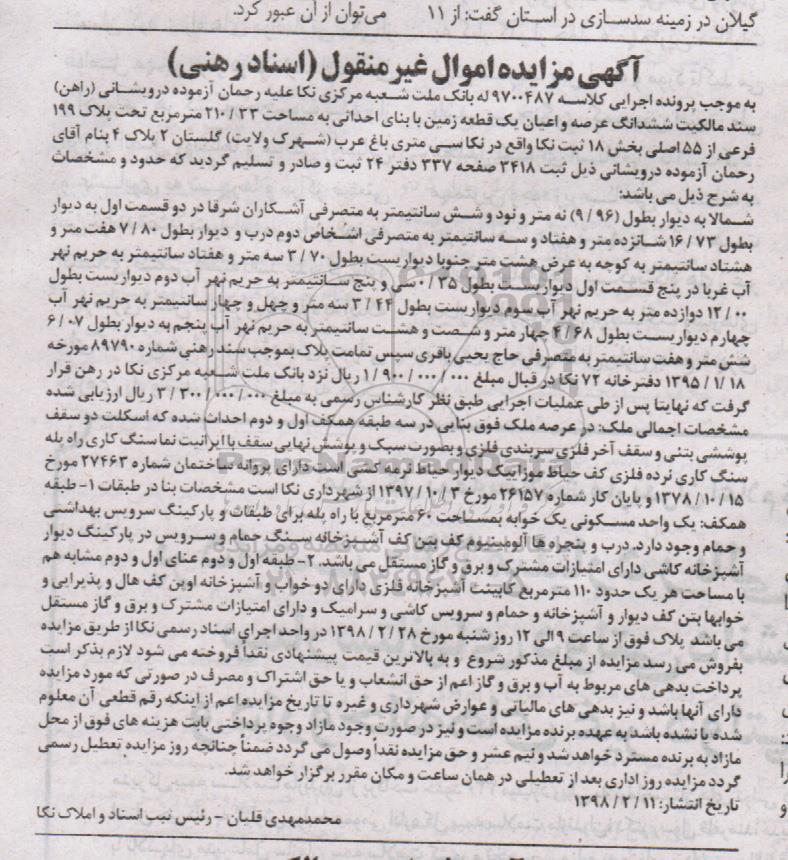 گیلان در زمینه سدسازی در استان گفت: از ۱۱ می‌توان از آن عبور کرد.
آگهی مزایده اموال غیر منقول (اسناد رهنی)
به موجب پرونده اجرایی کلاسه ۹۷۰۰۴۸۷ له بانک ملت شعبه مرکزی نکا علیه رحمان آزموده درویشانی (راهن)
سند مالکیت ششدانگ عرصه و اعیان یک قطعه زمین با بنای احداثی به مساحت ۲۱۰/۳۳ مترمربع تحت پلاک ۱۹۹
فرعی از ۵۵ اصلی بخش ۱۸ ثبت نکا واقع در نکا سی متری باغ عرب (شهرک ولایت) گلستان ۲ پلاک ۴ بنام آقای
رحمان آزموده درویشانی ذیل ثبت ۳۴۱۸ صفحه ۳۳۷ دفتر ۲۴ ثبت و صادر و تسلیم گردید که حدود و مشخصات
به شرح ذیل می باشد:
شمالا به دیوار بطول (۹/۹۶) نه متر و نود و شش سانتیمتر به متصرفی آشکاران شرقا در دو قسمت اول به دیوار
بطول ۱۶/۷۳ شانزده متر و هفتاد و سه سانتیمتر به متصرفی اشخاص دوم درب و دیوار بطول ۷/۸۰ هفت متر و
هشتاد سانتیمتر به کوچه به عرض هشت متر جنوبا دیواریست بطول ۳/۷۰ سه متر و هفتاد سانتیمتر به حریم نهر
آب غربا در پنج قسمت اول دیواریست بطول ۰/۳۵ سی و پنج سانتیمتر به حریم نهر آب دوم دیواریست بطول
۱۲/۰۰ دوازده متر به حریم نهر آب سوم دیواریست بطول ۳/۴۴ سه متر و چهل و چهار سانتیمتر به حریم نهر آب
چهارم دیواریست بطول ۴/۶۸ چهار متر و شصت و هشت سانتیمتر به حریم نهر آب پنجم به دیوار بطول ۶/۰۷
شش متر و هفت سانتیمتر به متصرفی حاج یحیی باقری سپس تمامت پلاک بموجب سند رهنی شماره ۸۹۷۹۰ مورخه
۱۳۹۵/۱/۱۸ دفترخانه ۷۲ نکا در قبال مبلغ ۱/۹۰۰/۰۰۰/۰۰۰ ریال نزد بانک ملت شعبه مرکزی نکا در رهن قرار
گرفت که نهایتا پس از طی عملیات اجرایی طبق نظر کارشناس رسمی به مبلغ ۳/۳۰۰/۰۰۰/۰۰۰ ریال ارزیابی شده
مشخصات اجمالی ملک: در عرصه ملک فوق بنایی در سه طبقه همکف اول و دوم احداث شده که اسکلت دو سقف
پوششی بتنی و سقف آخر فلزی سربندی فلزی و بصورت سبک و پوشش نهایی سقف با ایرانیت نما سنگ کاری راه پله
سنگ کاری نرده فلزی کف حیاط موزاییک دیوار حیاط نرمه کشی است دارای پروانه ساختمان شماره ۲۷۴۶۳ مورخ
۱۳۷۸/۱۰/۱۵ و پایان کار شماره ۲۶۱۵۷ مورخ ۱۳۹۷/۱۰/۳ از شهرداری نکا است مشخصات بنا در طبقات ۱- طبقه
همکف: یک واحد مسکونی یک خوابه بمساحت ۶۰ مترمربع با راه پله برای طبقات و پارکینگ سرویس بهداشتی
و حمام وجود دارد. درب و پنجره ها آلومینیوم کف بتن کف آشپزخانه سنگ حمام و سرویس در پارکینگ دیوار
آشپزخانه کاشی دارای امتیازات مشترک و برق و گاز مستقل می باشد. ۲- طبقه اول و دوم عنای اول و دوم مشابه هم
با مساحت هر یک حدود ۱۱۰ مترمربع کابینت آشپزخانه فلزی دارای دو خواب و آشپزخانه اوپن کف هال و پذیرایی و
خوابها بتن کف دیوار و آشپزخانه و حمام و سرویس کاشی و سرامیک و دارای امتیازات مشترک و برق و گاز مستقل
می باشد. پلاک فوق از ساعت ۹ الی ۱۲ روز شنبه مورخ ۱۳۹۸/۲/۲۸ در واحد اجرای اسناد رسمی نکا از طریق مزایده
بفروش می رسد مزایده از مبلغ مذکور شروع و به بالاترین قیمت پیشنهادی نقداً فروخته می شود لازم بذکر است
پرداخت بدهی های مربوط به آب و برق و گاز اعم از حق انشعاب و یا حق اشتراک و مصرف در صورتی که مورد مزایده
دارای آنها باشد و نیز بدهی های مالیاتی و عوارض شهرداری و غیره تا تاریخ مزایده اعم از اینکه رقم قطعی آن معلوم
شده یا نشده باشد به عهده برنده مزایده است و نیز در صورت وجود مازاد وجوه پرداختی بابت هزینه های فوق از محل
مازاد به برنده مسترد خواهد شد و نیم عشر و حق مزایده نقداً وصول می گردد ضمناً چنانچه روز مزایده تعطیل رسمی
گردد مزایده روز اداری بعد از تعطیلی در همان ساعت و مکان مقرر برگزار خواهد شد.
تاریخ انتشار: ۱۳۹۸/۲/۱۱
محمدمهدی قلیان - رئیس ثبت اسناد و املاک نکا